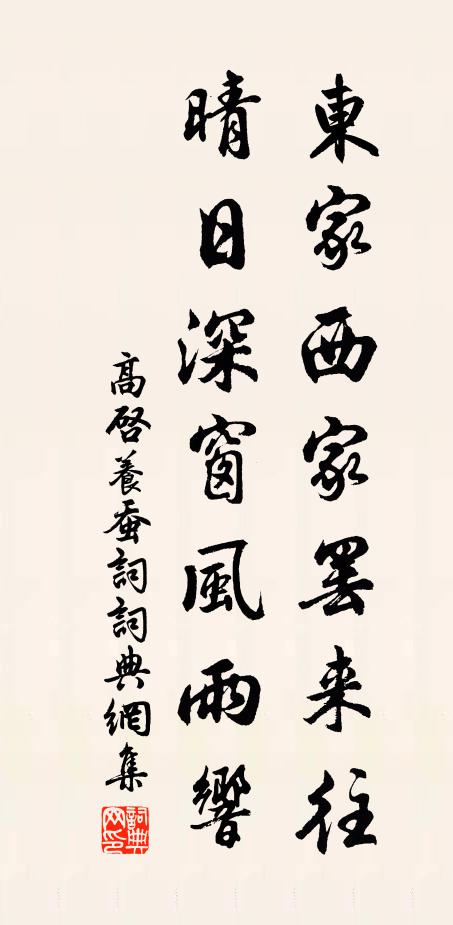 東家西家罢来往
晴日深窗風雨響
高啓養蚕詞詞典網集
詞典网印